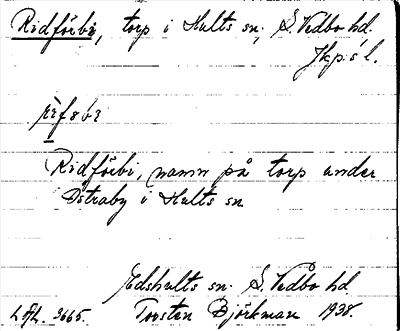 Ridförbi, torp i Hults sn, S. Vedbo hd.
Jkp:s l.
Ridförbi, namn på torp under
Östraby i Hults sn
Edshults sn. S. Vedbo hd.
Lfl. 3665. Torsten Björkman 1935.